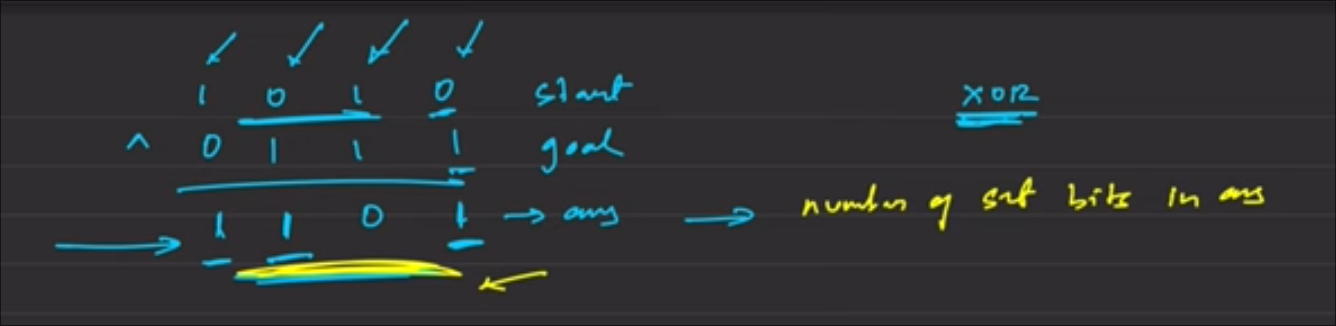 1 0 1 0 start
XOR
^ 0 1 1 1 goal
1 1 0 1 → ans → number of set bits in ans